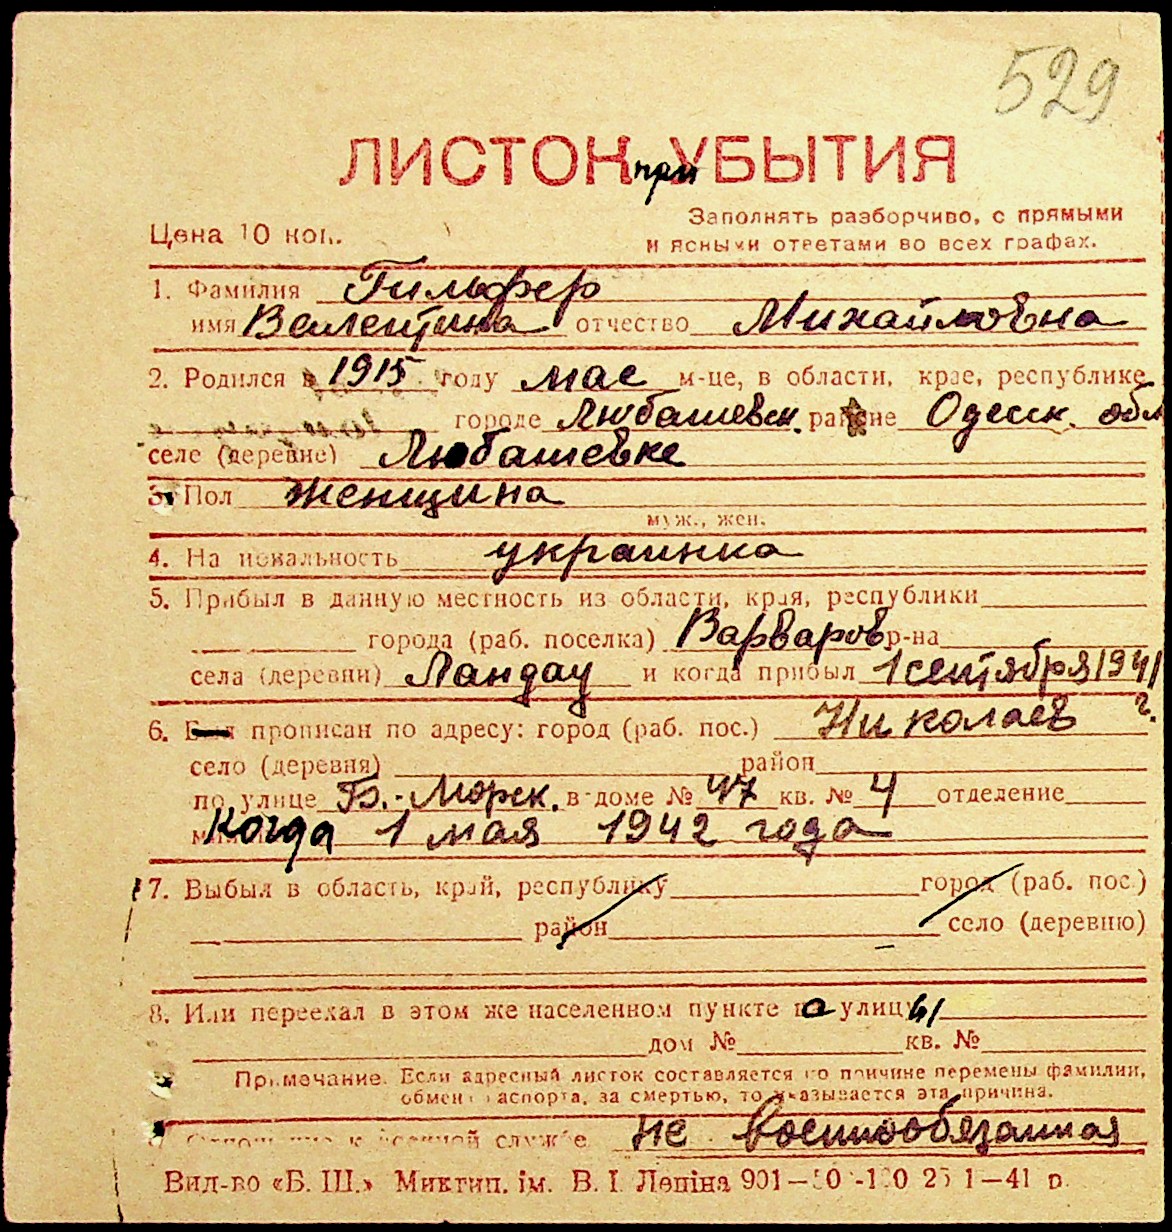 529
ЛИСТОК при УБЫТИЯ
Цена 10 коп.
Заполнять разборчиво, с прямыми
и ясными ответами во всех графах.
1. Фамилия Гильфер
имя Валентина отчество Михайловна
2. Родился в 1915 году мае м-це, в области, крае, республике
городе Любашевск. районе Одесск. обл
селе (деревне) Любашевке
3. Пол женщина
муж., жен.
4. Национальность украинка
5. Прибыл в данную местность из области, края, республики
города (раб. поселка) Варваров р-на
села (деревни) Ландау и когда прибыл 1 сентября 1941
г.
6. Был прописан по адресу: город (раб. пос.) Николаев
село (деревня) район
по улице Б.-Морск. в доме № 47 кв. № 4 отделение
Когда 1 мая 1942 года
7. Выбыл в область, край, республику город (раб. пос.)
район село (деревню)
8. Или переехал в этом же населенном пункте на улицы
дом № кв. №
Примечание. Если адресный листок составляется по причине перемены фамилии,
обмен паспорта, за смертью, то указывается эта причина.
Отношение к военной службе не военнообязанная
Вид-во «Б. Ш.» Миктип. ім. В. І. Леніна 901— 25 1—41 р.